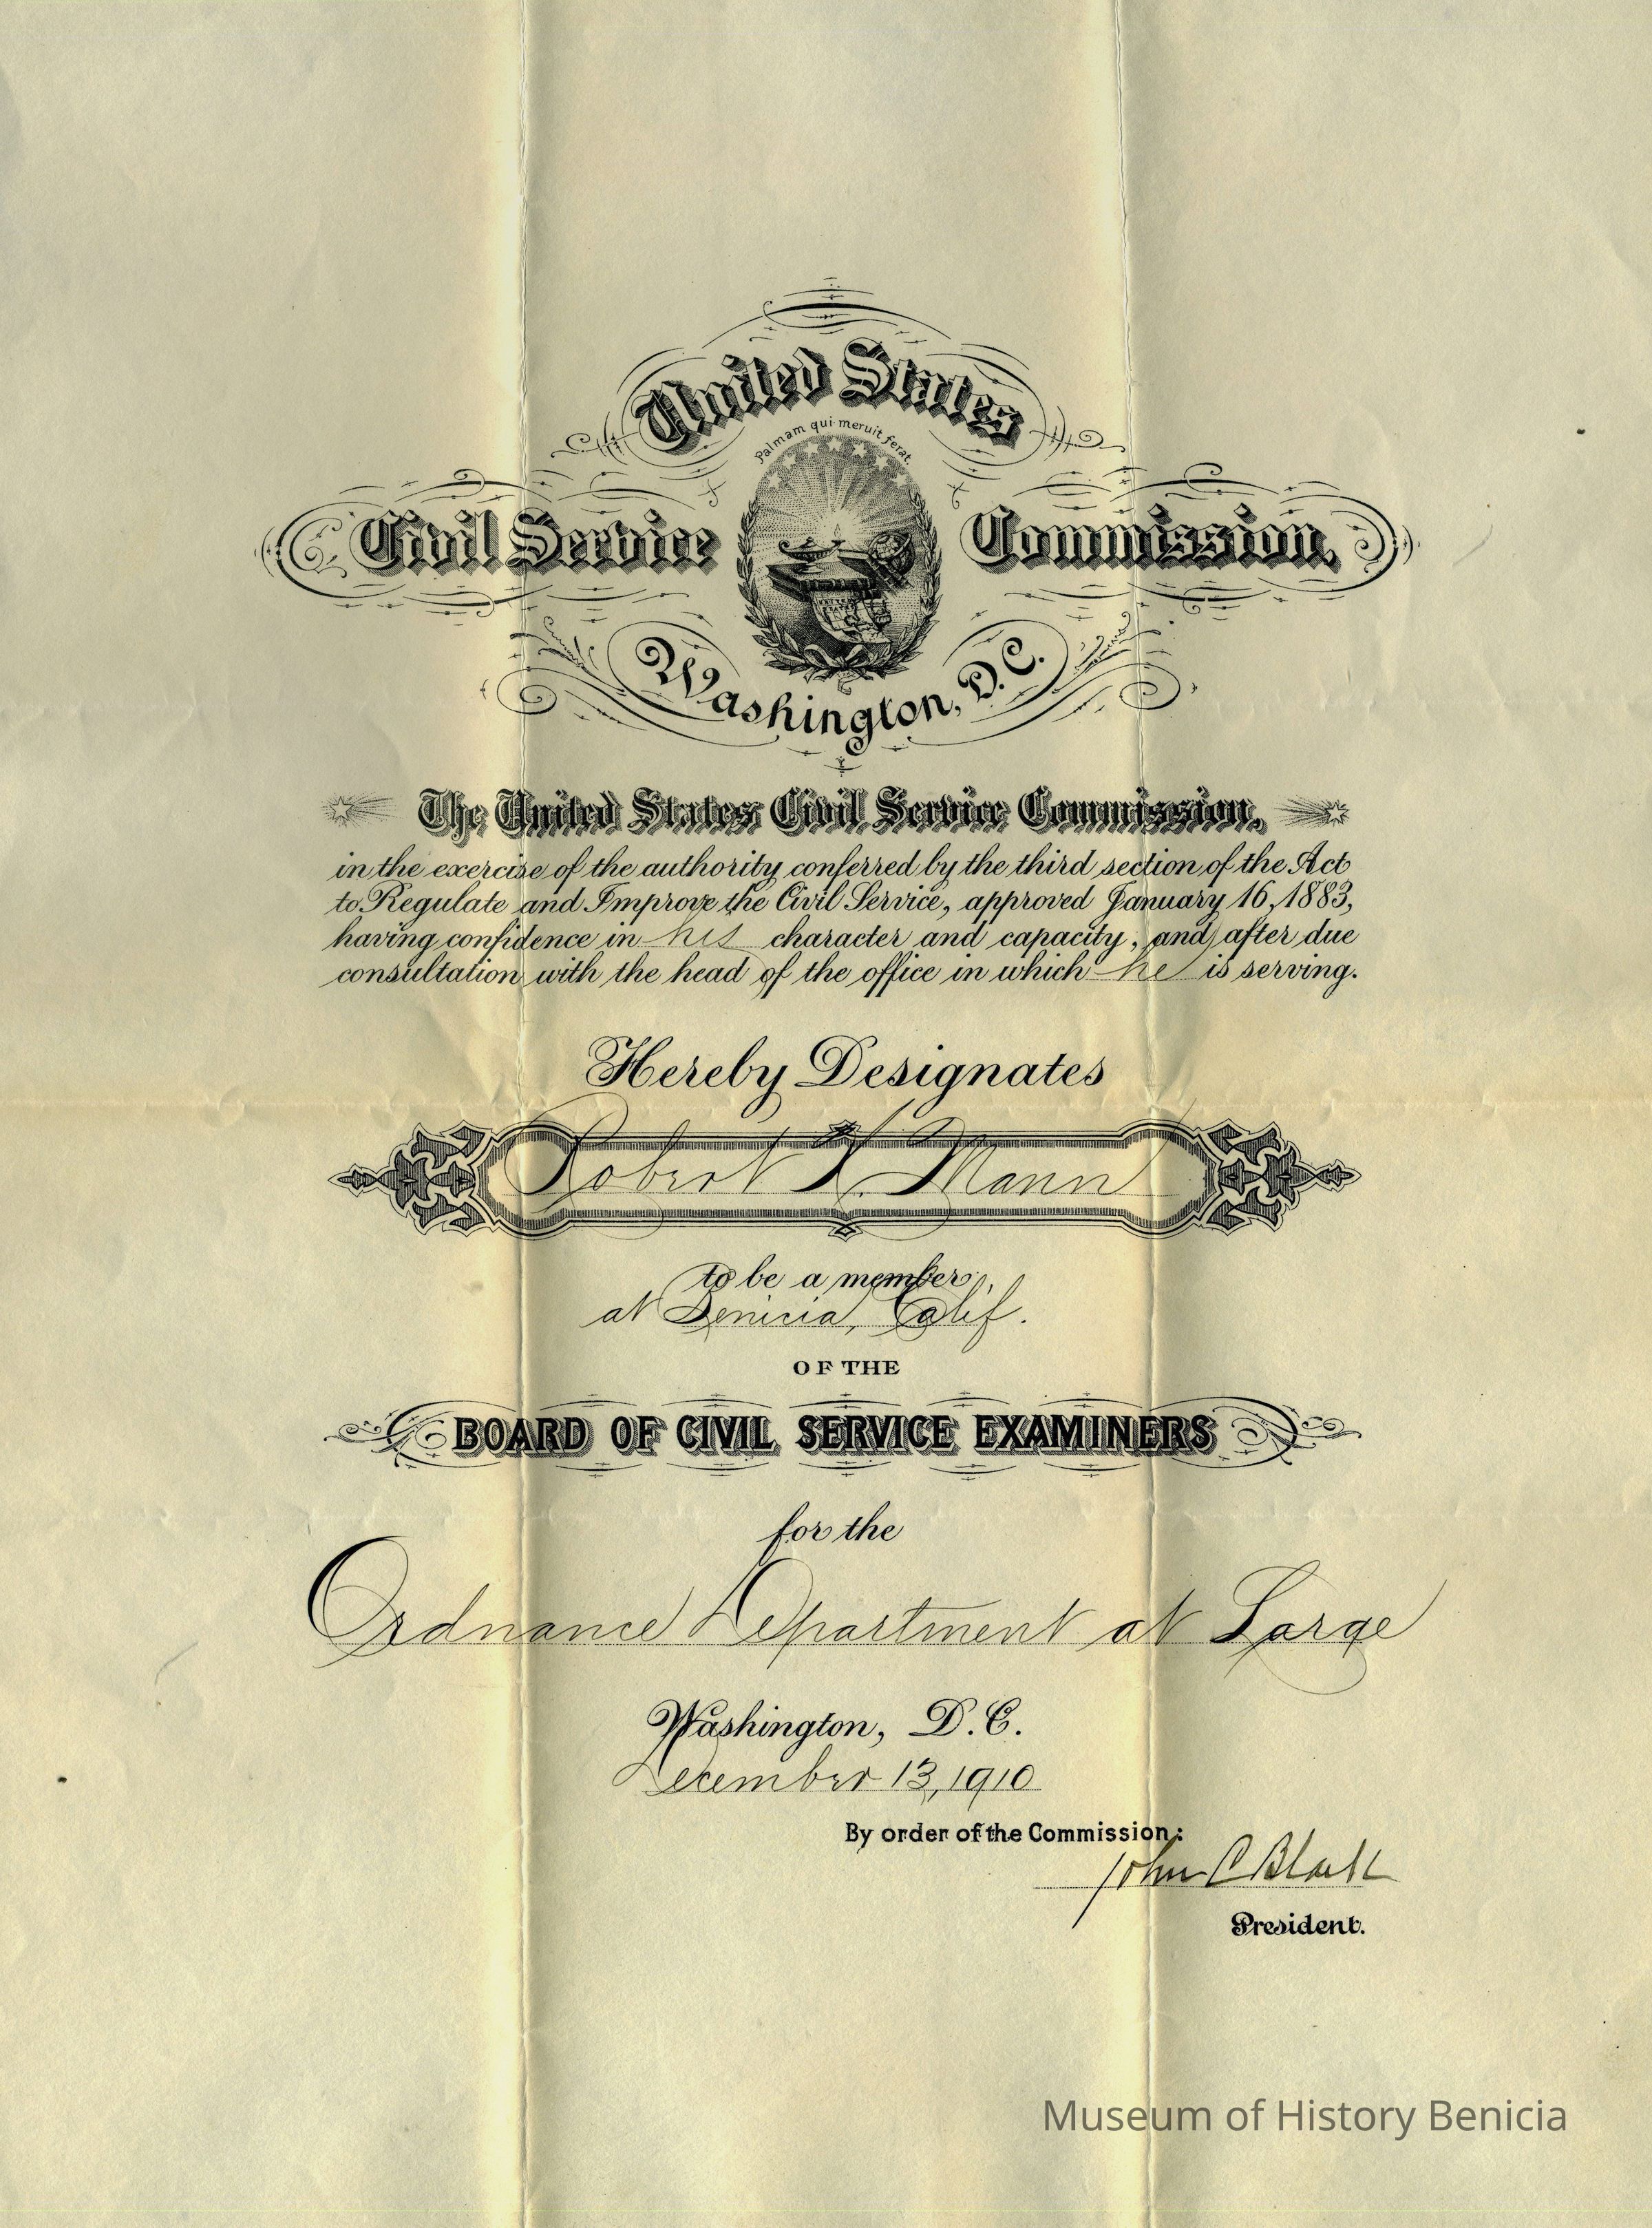 United States
Palmam qui meruit ferat.
Civil Service Commission,
Washington, D.C.
The United States Civil Service Commission,
in the exercise of the authority conferred by the third section of the Act
to Regulate and Improve the Civil Service, approved January 16, 1883,
having confidence in his character and capacity, and, after due
consultation with the head of the office in which he is serving.
Hereby Designates
Robert Mann
to be a member,
at Benicia, Calif.
OF THE
BOARD OF CIVIL SERVICE EXAMINERS
for the
Ordnance Department at Large
Washington, D.C.
December 13, 1910
By order of the Commission:
John C Black
President.
Museum of History Benicia